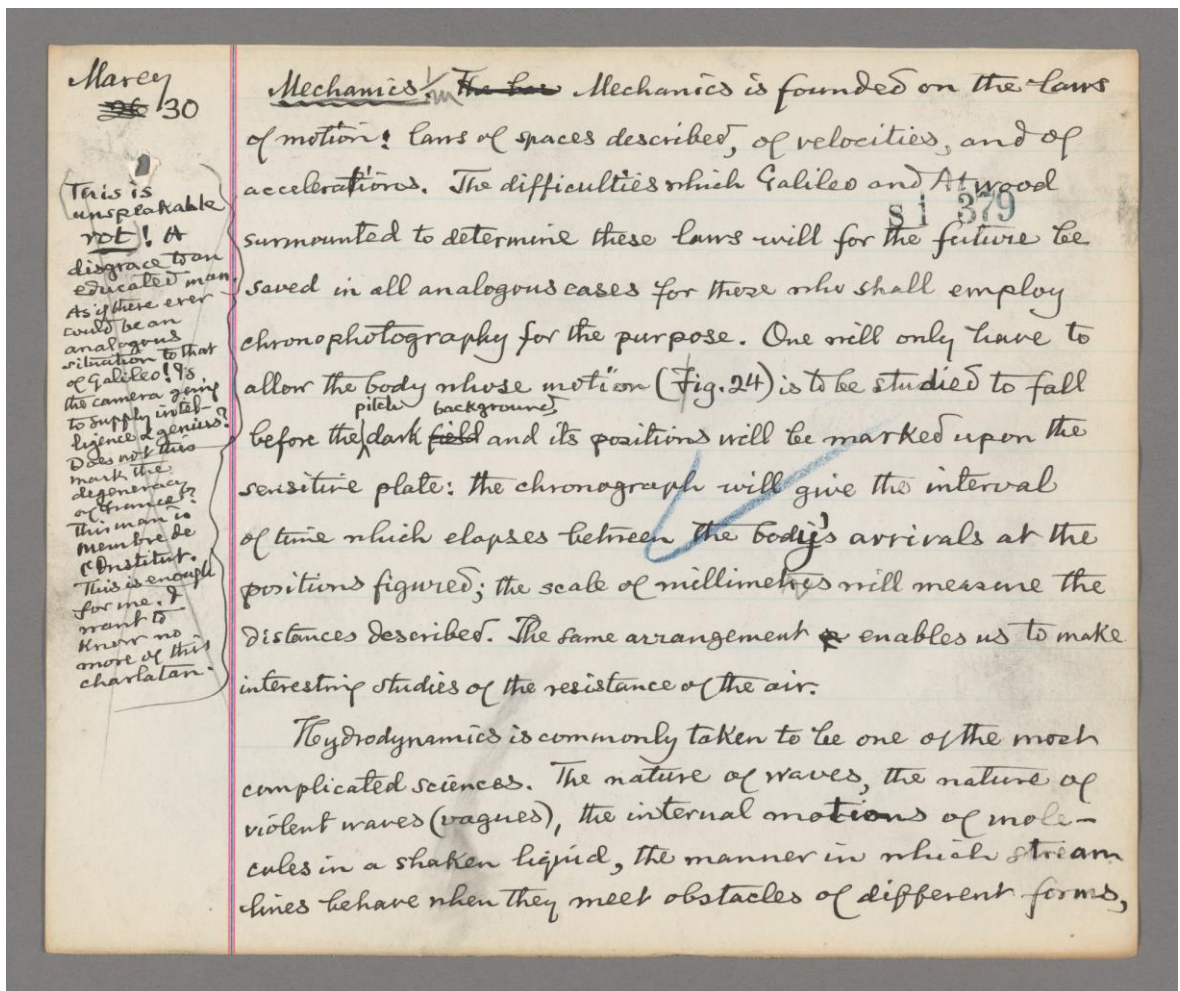 Marey
26 30
(This is
unspeakable
rot! A
disgrace to an
educated man.
As if there ever
could be an
analogous
situation to that
of Galileo! Is
the camera going
to supply intel-
ligence & genius?
Does not this
mark the
degeneracy
of France?
This man is
Membre de
l'Institut.
This is enough
for me. I
want to
know no
more of this
charlatan.)
Mechanics. The law Mechanics is founded on the laws
of motion: laws of spaces described, of velocities, and of
accelerations. The difficulties which Galileo and Atwood
S1 379
surmounted to determine these laws will for the future be
saved in all analogous cases for those who shall employ
chronophotography for the purpose. One will only have to
allow the body whose motion (Fig. 24) is to be studied to fall
pitch background
before the dark field and its positions will be marked upon the
sensitive plate: the chronograph will give the interval
of time which elapses between the body's arrivals at the
positions figured; the scale of millimetres will measure the
distances described. The same arrangement enables us to make
interesting studies of the resistance of the air.
Hydrodynamics is commonly taken to be one of the most
complicated sciences. The nature of waves, the nature of
violent waves (vagues), the internal motions of mole-
cules in a shaken liquid, the manner in which stream
lines behave when they meet obstacles of different forms,